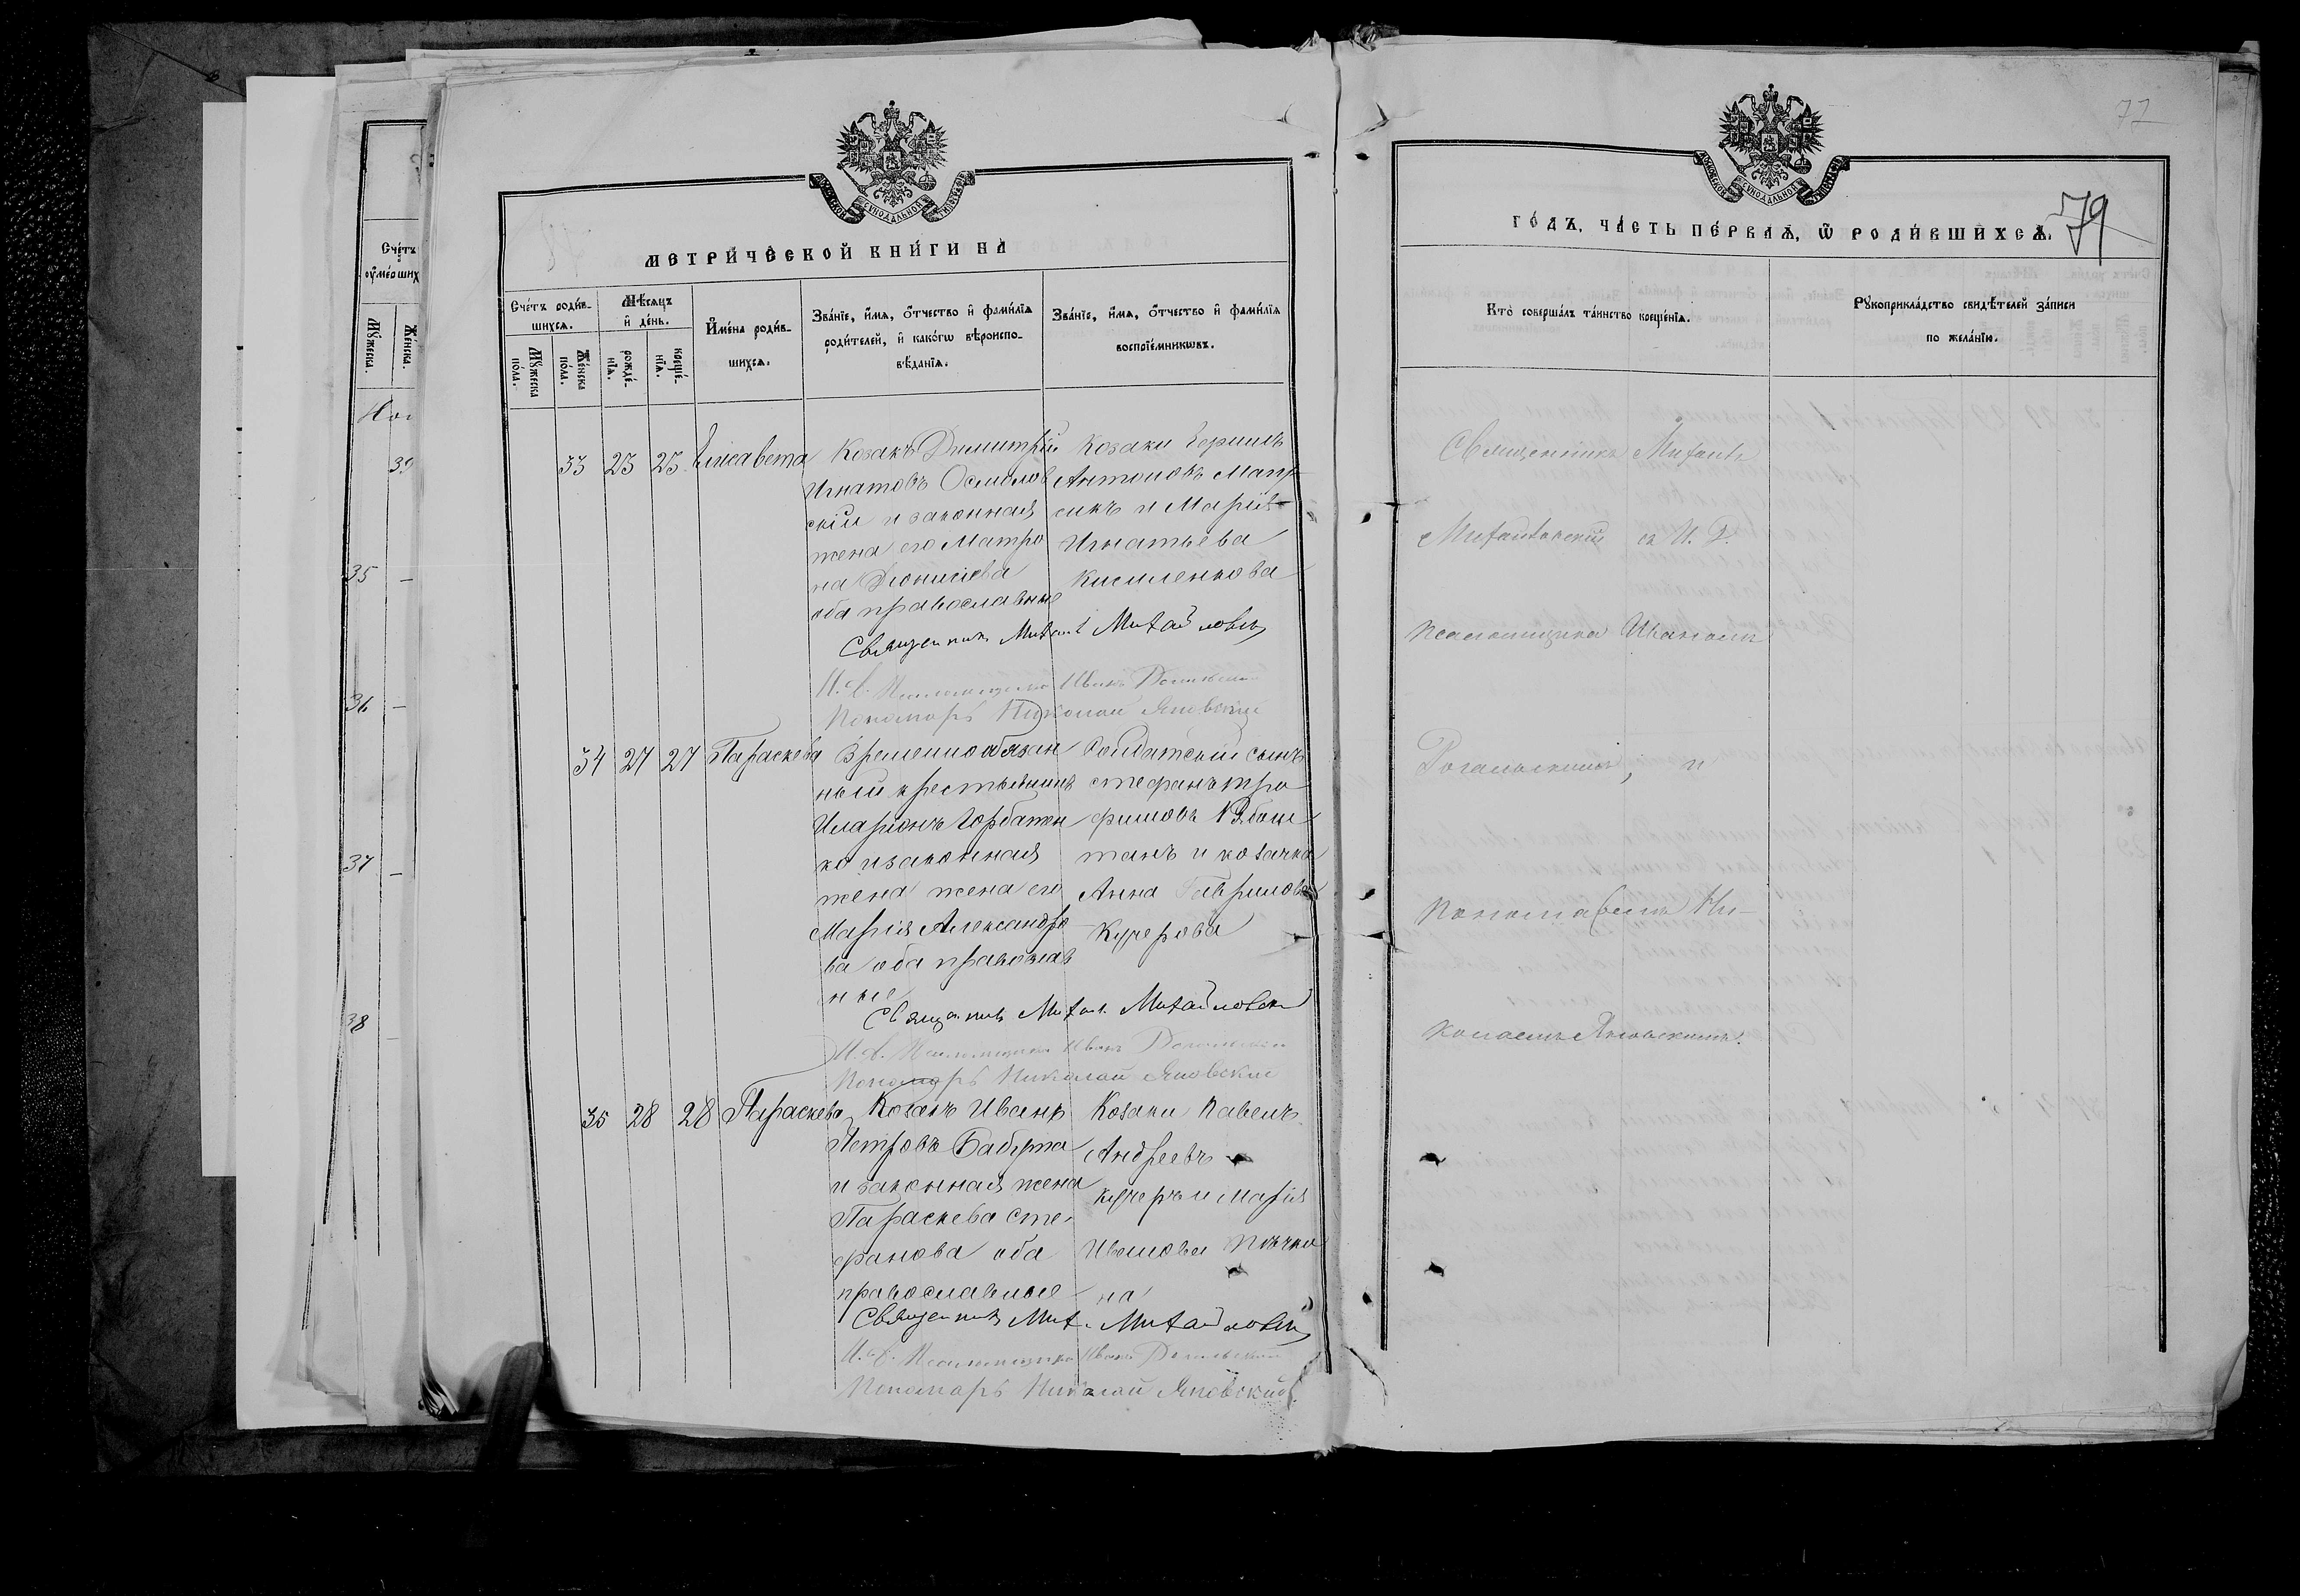 Счетъ
умерших
Мужеска.
Женска.
35
36
37
38
МЕТРИЧЕСКОЙ КНИГИ НА
Счетъ родив-
шихся.
Мѣсяцъ
и день.
Имена родив-
шихся.
Званіе, имя, отчество и фамилія
родителей, и какогω вѣроиспо-
вѣданія.
Званіе, имя, отчество и фамилія
воспріемникωвъ.
Мужеска
пола.
Женска
пола.
рожде-
нія.
креще-
нія.
33 23 25 Елисавета
Козакъ Димитрій
Игнатовъ Осмолов
скій и законная
жена его Матро
на Діонисіева
оба православные
Козаки
Антоновъ
и Марія
Игнатьева
Кисиленкова
Священникъ Михаил Михайловскі
И. д. Псаломщика Иванъ
Пономарь Николай Яновскій
34 27 27 Параскева
Временнообязан
ный крестьянинъ
Иларіонъ Горбатен
ко и законная
жена жена его
Марія Александро
ва оба православ
ные
Солдатскій сынъ
Стефанъ Тро
фимовъ
и козачка
Анна Гаврилова
Кучерова
Священникъ Михаил Михайловскі
И. д. Псаломщика Иванъ
Пономарь Николай Яновскій
35 28 28 Параскева
Козакъ Иванъ
Петровъ Бабута
и законная жена
Параскева Сте-
фанова оба
православные
Козаки Павелъ
Андреевъ
Кучеръ и Марія
Иванова
на
Священникъ Мих. Михайловскі
И. д. Псаломщика Иванъ
Пономарь Николай Яновскій
МОСКОВСКОЙ СУНОДАЛЬНОЙ ТИПОГРАФІИ
77
79
ГОДЪ, ЧАСТЬ ПЕРВАЯ, Ѿ РОДИВШИХСЯ.
Кто совершалъ таинство крещенія.
Рукоприкладство свидѣтелей записи
по желанію.
Священникъ Михаилъ
Михайловскій съ И. Д.
псаломщика Иваномъ
и
Пономаремъ Ни-
колаемъ Яновскимъ.